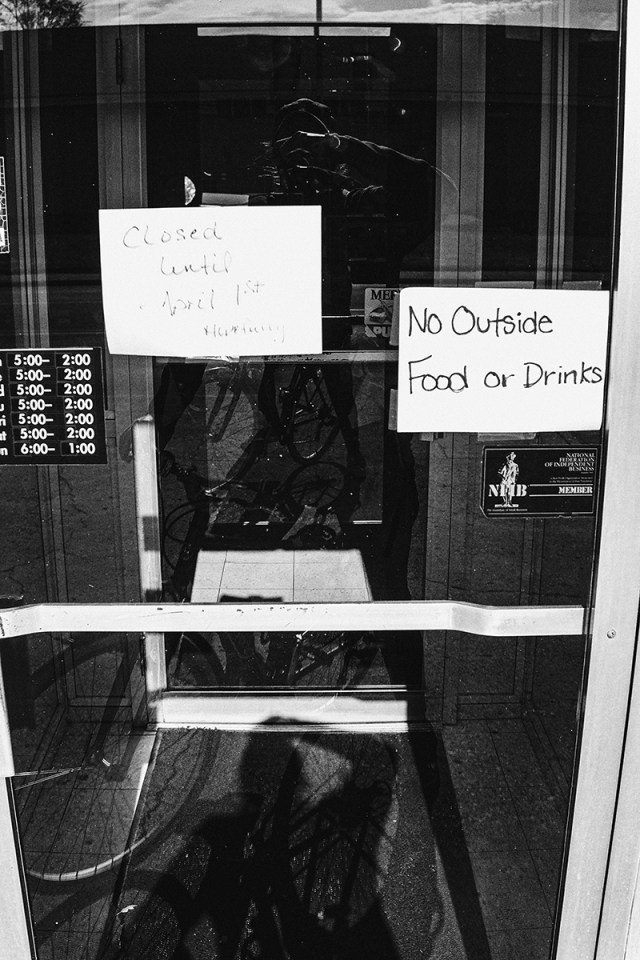 Closed
Until
April 1st
No Outside
Food or Drinks
5:00– 2:00
5:00– 2:00
5:00– 2:00
5:00– 2:00
5:00– 2:00
5:00– 2:00
6:00– 1:00
NATIONAL
FEDERATION
OF INDEPENDENT
BUSINESS
NFIB
MEMBER